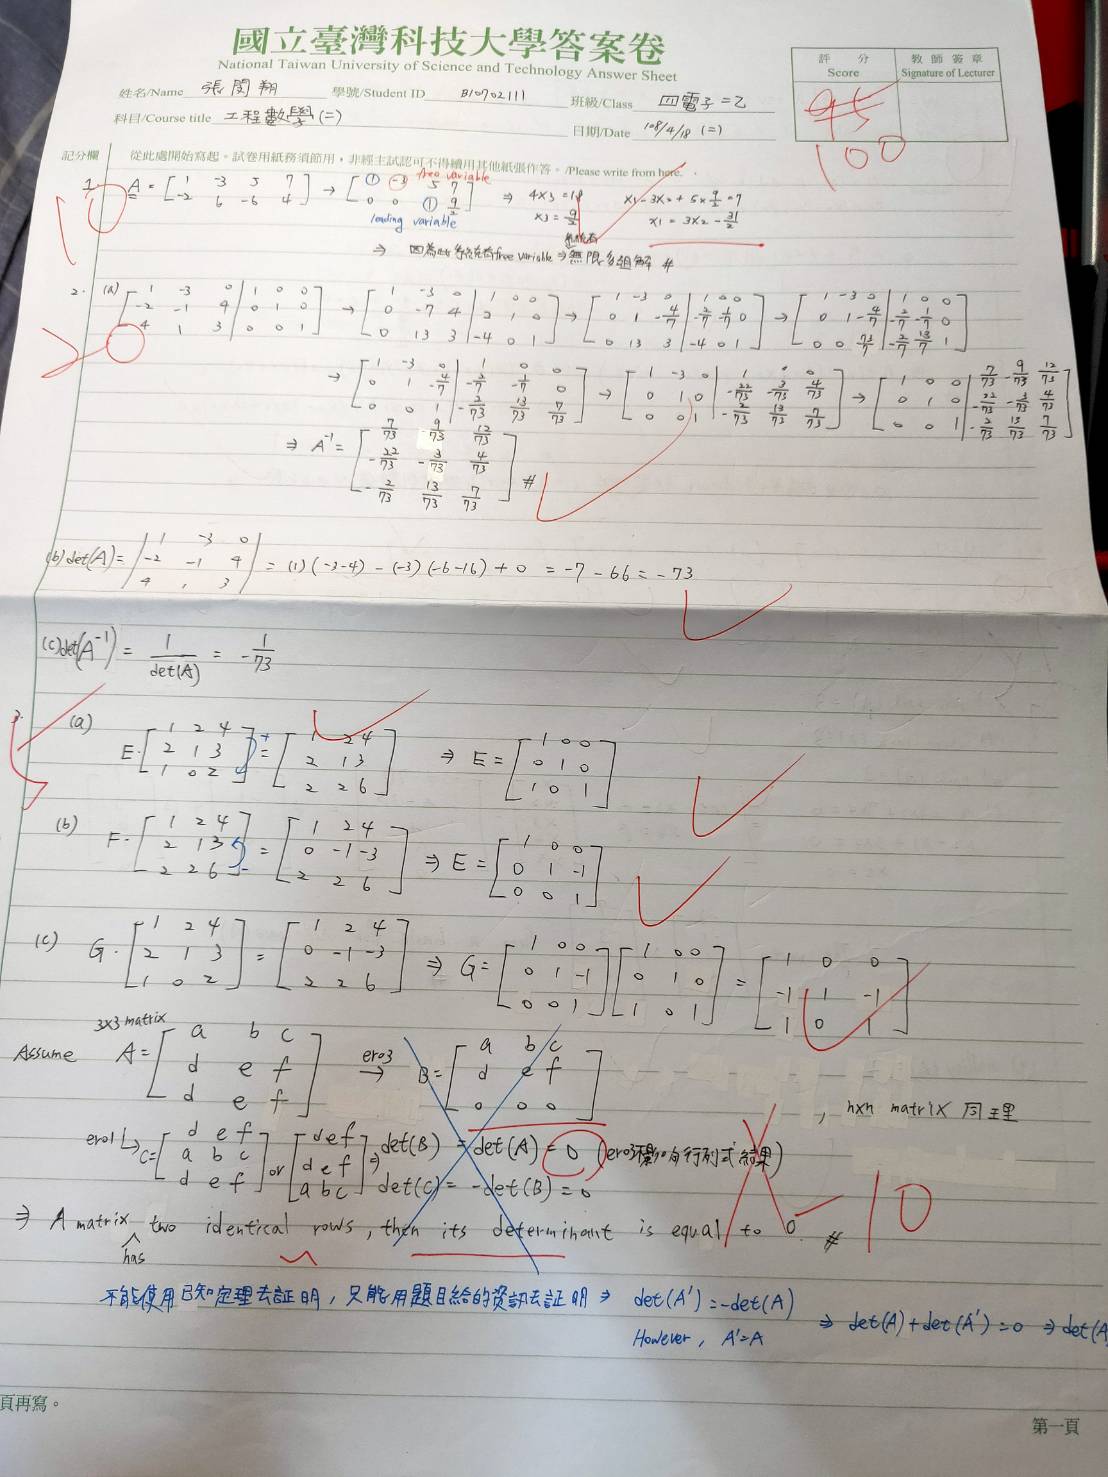 國立臺灣科技大學答案卷
National Taiwan University of Science and Technology Answer Sheet
評 分 Score 教師簽章 Signature of Lecturer
姓名/Name 張閔翔 學號/Student ID B10702111 班級/Class 四電子二乙
95
100
科目/Course title 工程數學(二) 日期/Date 108/4/18 (二)
記分欄 從此處開始寫起。試卷用紙務須節用,非經主試認可不得續用其他紙張作答。/Please write from here.
10
free variable
1. A = [1 -3 5 7; -2 6 -6 4] → [① -3 5 7; 0 0 ① 9/2] ⇒ 4x3=18 x1-3x2+5×9/2=7
leading variable x3=9/2 x1=3x2-31/2
⇒ 因為此系統有free variable ⇒ 系統有無限多組解 #
20
2. (a) [1 -3 0 | 1 0 0; -2 -1 4 | 0 1 0; 4 1 3 | 0 0 1] → [1 -3 0 | 1 0 0; 0 -7 4 | 2 1 0; 0 13 3 | -4 0 1] → [1 -3 0 | 1 0 0; 0 1 -4/7 | -2/7 -1/7 0; 0 13 3 | -4 0 1] → [1 -3 0 | 1 0 0; 0 1 -4/7 | -2/7 -1/7 0; 0 0 73/7 | -2/7 13/7 1]
→ [1 -3 0 | 1 0 0; 0 1 -4/7 | -2/7 -1/7 0; 0 0 1 | -2/73 13/73 7/73] → [1 -3 0 | 1 0 0; 0 1 0 | -22/73 -3/73 4/73; 0 0 1 | -2/73 13/73 7/73] → [1 0 0 | 7/73 -9/73 12/73; 0 1 0 | -22/73 -3/73 4/73; 0 0 1 | -2/73 13/73 7/73]
⇒ A⁻¹ = [7/73 -9/73 12/73; -22/73 -3/73 4/73; -2/73 13/73 7/73] #
(b) det(A) = |1 -3 0; -2 -1 4; 4 1 3| = (1)(-3-4) - (-3)(-6-16) + 0 = -7-66 = -73
(c) det(A⁻¹) = 1/det(A) = -1/73
3. (a) E·[1 2 4; 2 1 3; 1 0 2] = [1 2 4; 2 1 3; 2 2 6] ⇒ E = [1 0 0; 0 1 0; 1 0 1]
(b) F·[1 2 4; 2 1 3; 2 2 6] = [1 2 4; 0 -1 -3; 2 2 6] ⇒ E = [1 0 0; 0 1 -1; 0 0 1]
(c) G·[1 2 4; 2 1 3; 1 0 2] = [1 2 4; 0 -1 -3; 2 2 6] ⇒ G = [1 0 0; 0 1 -1; 0 0 1][1 0 0; 0 1 0; 1 0 1] = [1 0 0; -1 1 -1; 1 0 1]
3x3 matrix
Assume A = [a b c; d e f; d e f] ero3 → B = [a b c; d e f; 0 0 0]
, nxn matrix 同理
ero1 ↳ C = [d e f; a b c; d e f] or [d e f; d e f; a b c] ⇒ det(B) = det(A) = 0 (ero3不影响行列式結果)
det(C) = -det(B) = 0
⇒ A matrix has two identical rows, then its determinant is equal to 0. #
-10
不能使用已知定理去証明,只能用題目給的資訊去証明 ⇒ det(A') = -det(A)
However, A'=A
⇒ det(A)+det(A')=0 ⇒ det(A
頁再寫。
第一頁